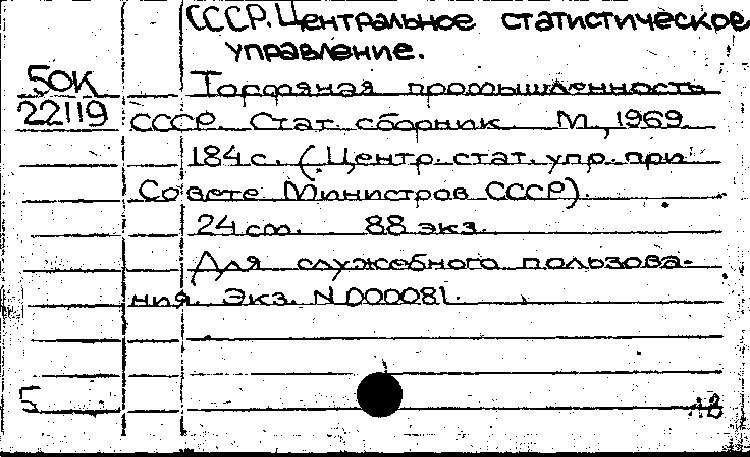 СССР. Центральное статистическое
управление.
50К
22119
Торфяная промышленность
СССР. Стат. сборник М., 1969
184 с. (Центр. стат. упр. при
Совете Министров СССР).
24 cm. 88 экз.
Для служебного пользова-
ния. Экз. N D00081.
5